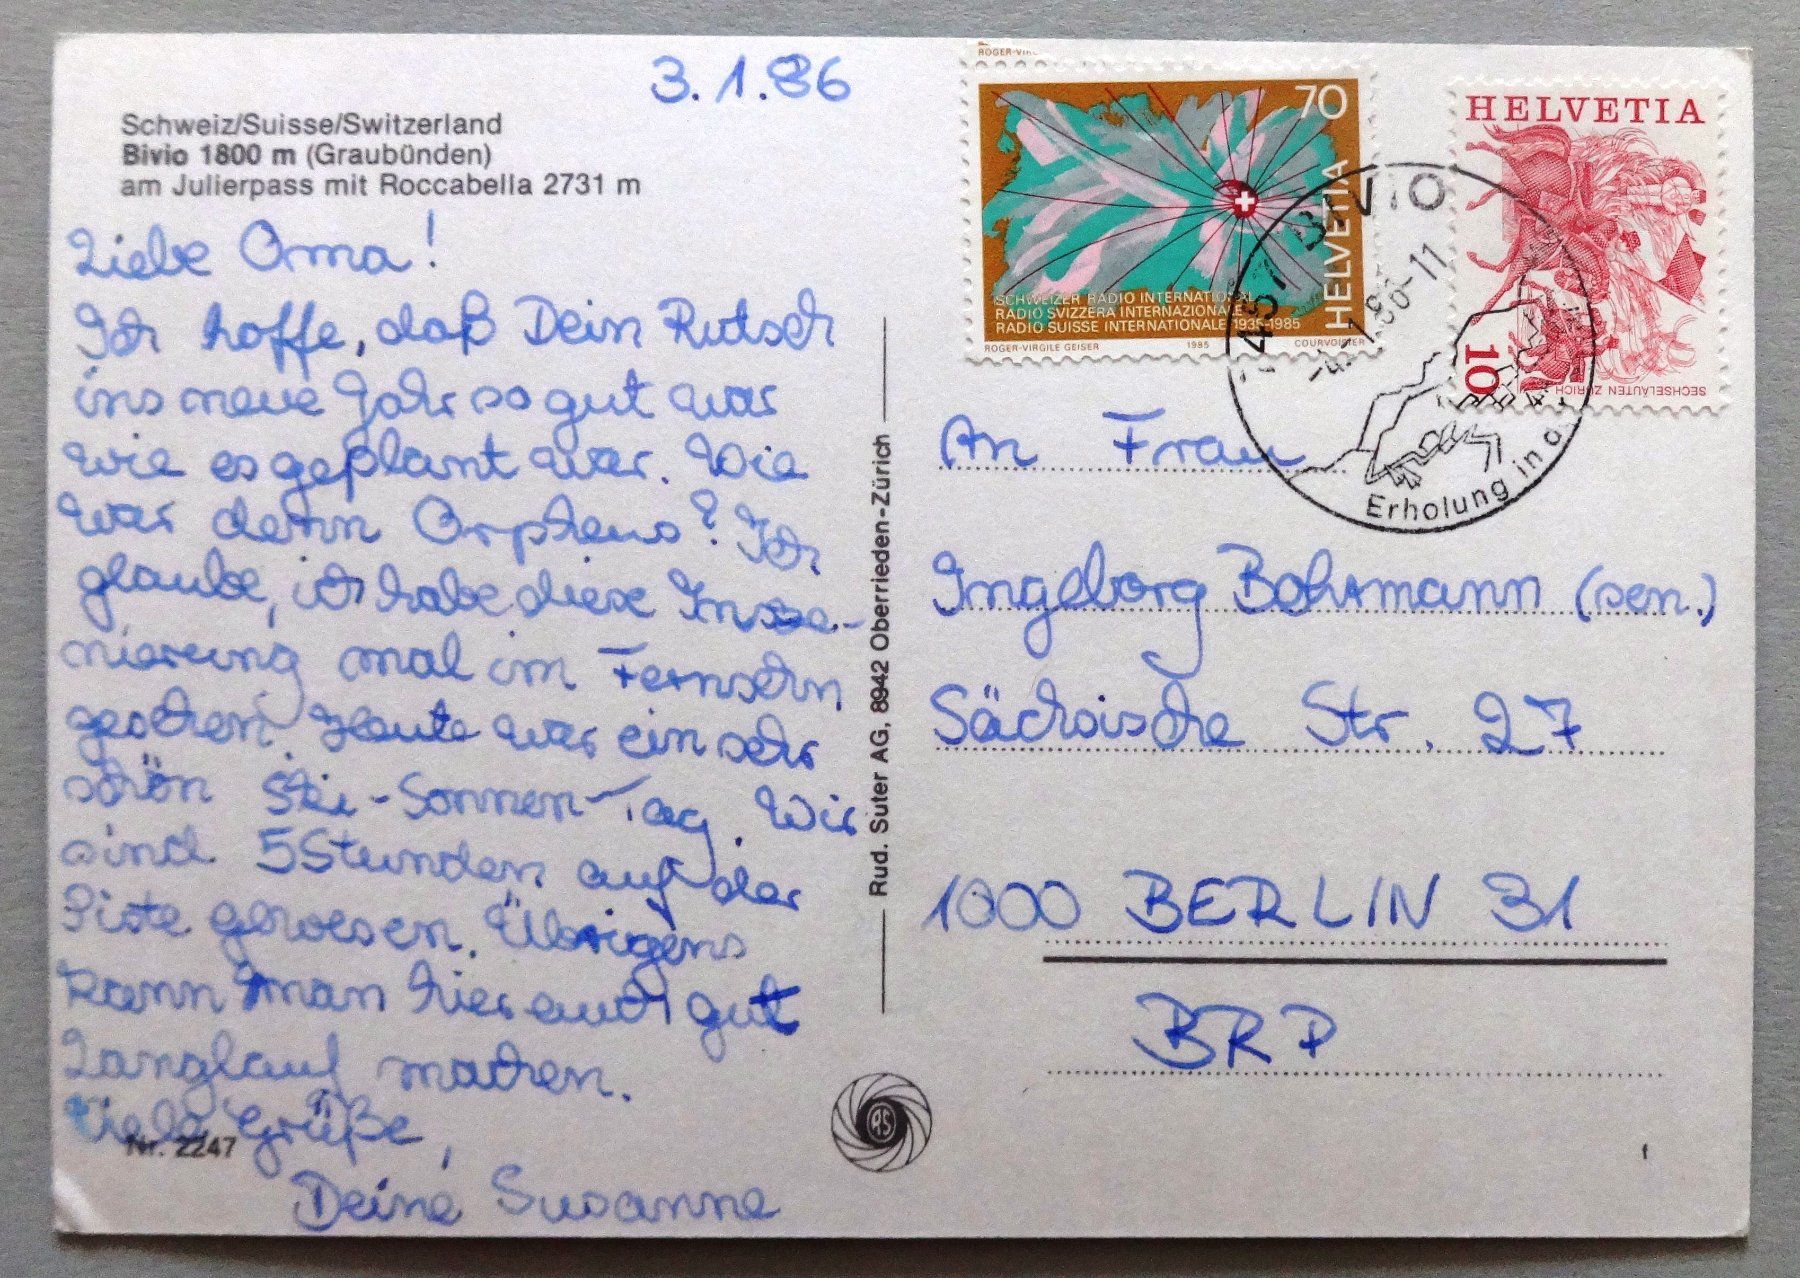 3.1.86
Schweiz/Suisse/Switzerland
Bivio 1800 m (Graubünden)
am Julierpass mit Roccabella 2731 m
Liebe Oma!
Ich hoffe, daß Dein Rutsch
ins neue Jahr so gut war
wie es geplant war. Wie
war denn Orpheus? Ich
glaube, ich habe diese Insze-
nierung mal im Fernsehn
gesehen. Heute war ein sehr
schön Ski-Sonnen-Tag. Wir
sind 5 Stunden auf der
Piste gewesen. Übrigens
kann man hier auch gut
Langlauf machen.
Viele Grüße,
Deine Susanne
Nr. 2247
Rud. Suter AG, 8942 Oberrieden-Zürich
RS
ROGER-VIR
70
HELVETIA
SCHWEIZER RADIO INTERNATIONAL
RADIO SVIZZERA INTERNAZIONALE
RADIO SUISSE INTERNATIONALE 1935-1985
ROGER-VIRGILE GEISER 1985 COURVOISIER
HELVETIA
10
SECHSELÄUTEN ZÜRICH
7457 BIVIO
-4.-1.86-11
Erholung in d
An Frau
Ingeborg Bohrmann (sen.)
Sächsische Str. 27
1000 BERLIN 31
BRP